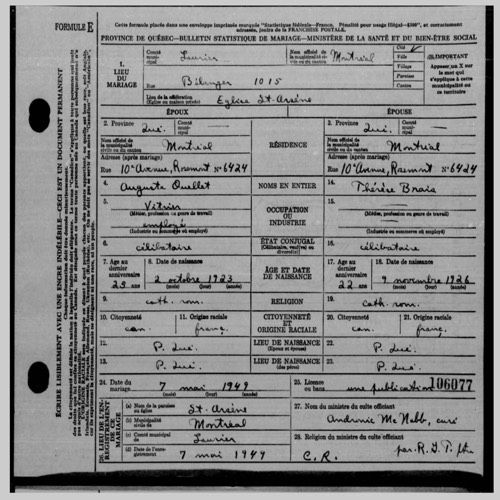 FORMULE E
Cette formule placée dans une enveloppe imprimée marquée "Statistique fédérale—Franco, Pénalité pour usage illégal—$300", et correctement adressée, jouira de la FRANCHISE POSTALE.
PROVINCE DE QUÉBEC—BULLETIN STATISTIQUE DE MARIAGE—MINISTÈRE DE LA SANTÉ ET DU BIEN-ÊTRE SOCIAL
ÉCRIRE LISIBLEMENT AVEC UNE ENCRE INDÉLÉBILE—CECI EST UN DOCUMENT PERMANENT
1. LIEU DU MARIAGE
Comté municipal Laurier
Nom officiel de la municipalité civile ou du canton Montréal
Cité
Ville
Village
Paroisse
Canton
IMPORTANT
Apposer un X sur le mot qui s'applique à cette municipalité ou ce territoire
Rue Bélanger 1015
Lieu de la célébration Eglise St-Arsène
(Église ou maison privée)
ÉPOUX
ÉPOUSE
2. Province Qué. Comté municipal
3. Province Qué. Comté municipal
RÉSIDENCE
Nom officiel de la municipalité civile ou du canton Montréal
Nom officiel de la municipalité civile ou du canton Montréal
Adresse (après mariage)
Rue 10e Avenue, Rosemont No 6424
Adresse (après mariage)
Rue 10e Avenue, Rosemont No 6424
4. Auguste Ouellet
NOMS EN ENTIER
14. Thérèse Brais
5. Vitrier
(Métier, profession ou genre de travail)
employé
(Industrie ou commerce où employé)
OCCUPATION OU INDUSTRIE
15.
(Métier, profession ou genre de travail)
(Industrie ou commerce où employée)
6. célibataire
ÉTAT CONJUGAL
(Célibataire, veuf(ve) ou divorcé(e))
16. célibataire
7. Age au dernier anniversaire
8. Date de naissance
2 octobre 1923
(jour) (mois) (année)
ÂGE ET DATE DE NAISSANCE
17. Age au dernier anniversaire 22
18. Date de naissance
9 novembre 1926
(jour) (mois) (année)
9. cath. rom.
RELIGION
19. cath. rom.
10. Citoyenneté can.
11. Origine raciale franç.
CITOYENNETÉ ET ORIGINE RACIALE
20. Citoyenneté can.
21. Origine raciale franç.
12. P. Qué.
LIEU DE NAISSANCE
(Époux et épouse)
22. P. Qué.
13. P. Qué.
LIEU DE NAISSANCE
(du père)
23. P. Qué.
24. Date du mariage 7 mai 1949
(jour) (mois) (année)
25. Licence ou bans une publication
106077
26. LIEU DE L'ENREGISTREMENT DE CE MARIAGE
(a) Nom de la paroisse ou église St-Arsène
(b) Nom officiel de la municipalité Montréal
(c) Comté municipal Laurier
(d) Date de l'enregistrement 7 mai 1949
(jour) (mois) (année)
27. Nom du ministre du culte officiant
Andronic McNabb, curé
28. Religion du ministre officiant
C.R.